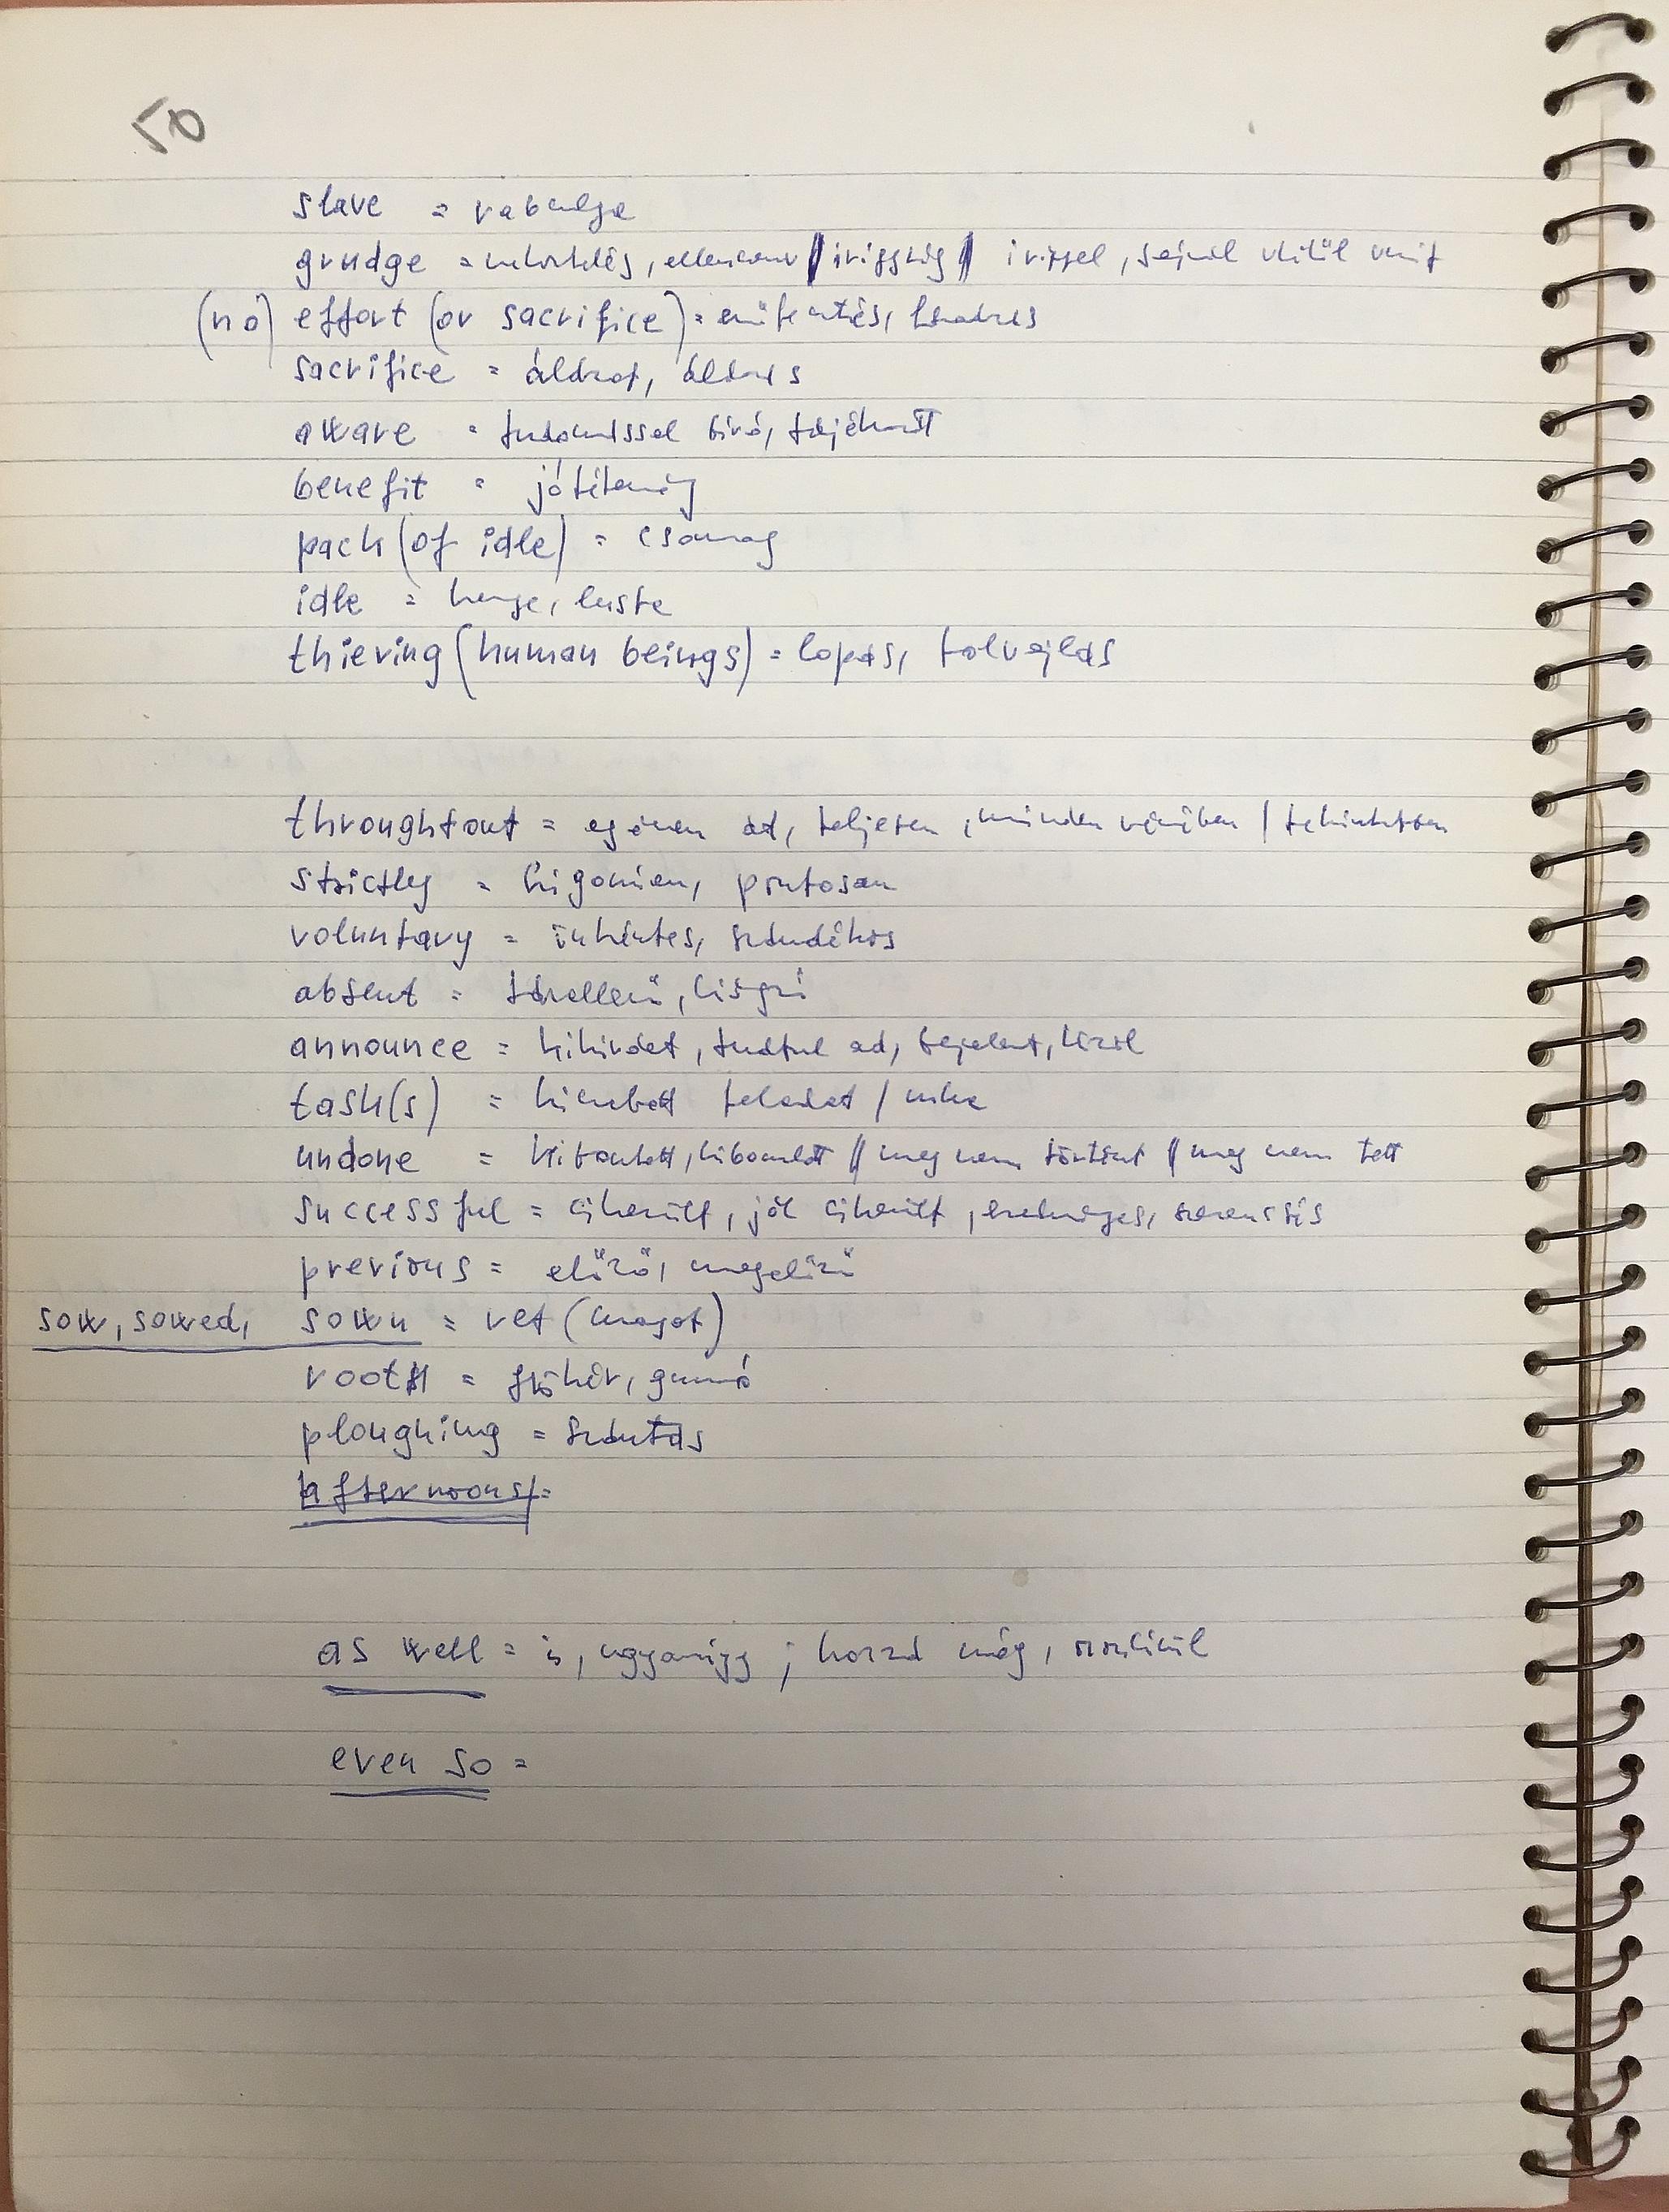 50
slave = rabszolga
grudge = neheztelés, ellenszenv || irigység || irigyel, sajnál vkitől vmit
(no) effort (or sacrifice) = erőfeszítés, fáradozás
sacrifice = áldozat, áldozás
aware = tudomással bíró, tájékozott
benefit = jótétemény
pack (of idle) = csomag
idle = henye, lusta
thieving (human beings) = lopás, tolvajlás
throughtout = egészen át, teljesen, minden részében / tekintetben
strictly = szigorúan, pontosan
voluntary = önkéntes, szándékos
absent = távollevő, hiányzó
announce = kihirdet, tudtul ad, bejelent, közöl
task(s) = kiszabott feladat / munka
undone = kibontott, kibomlott || meg nem történt || meg nem tett
successful = sikerült, jól sikerült, eredményes, szerencsés
previous = előző, megelőző
sow, sowed, sown = vet (magot)
root = gyökér, gumó
ploughing = szántás
afternoons =
as well = is, ugyanúgy; hozzá még, azonkívül
even so =